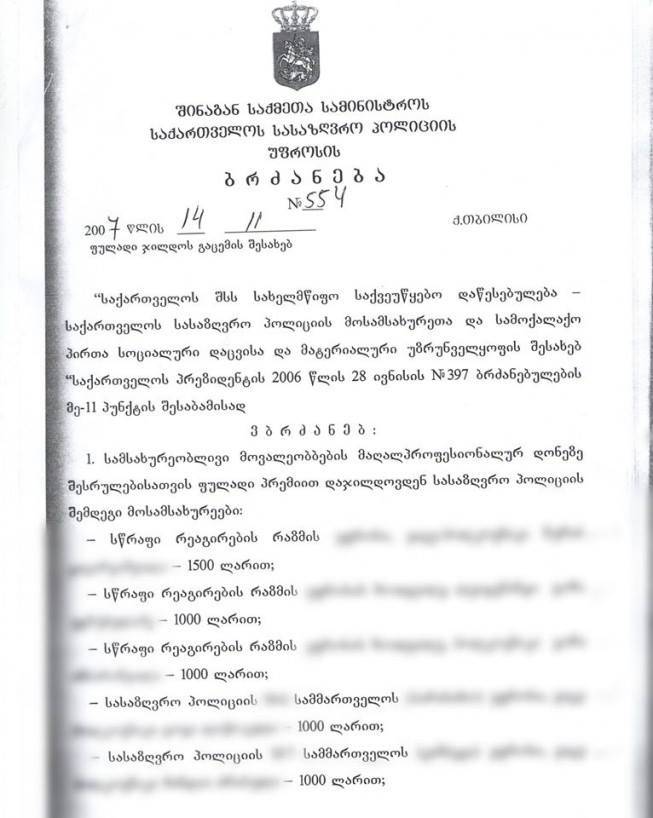 შინაგან საქმეთა სამინისტროს
საქართველოს სასაზღვრო პოლიციის
უფროსის
ბ რ ძ ა ნ ე ბ ა
№554
2007 წლის 14 11 ქ.თბილისი
ფულადი ჯილდოს გაცემის შესახებ
“საქართველოს შსს სახელმწიფო საქვეუწყებო დაწესებულება –
საქართველოს სასაზღვრო პოლიციის მოსამსახურეთა და სამოქალაქო
პირთა სოციალური დაცვისა და მატერიალური უზრუნველყოფის შესახებ
“საქართველოს პრეზიდენტის 2006 წლის 28 ივნისის №397 ბრძანებულების
მე-11 პუნქტის შესაბამისად
ვ ბ რ ძ ა ნ ე ბ :
1. სამსახურეობლივი მოვალეობბების მაღალპროფესიონალურ დონეზე
შესრულებისათვის ფულადი პრემიით დაჯილდოვდენ სასაზღვრო პოლიციის
შემდეგი მოსამსახურეები:
– სწრაფი რეაგირების რაზმის
– 1500 ლარით;
– სწრაფი რეაგირების რაზმის
– 1000 ლარით;
– სწრაფი რეაგირების რაზმის
– 1000 ლარით;
– სასაზღვრო პოლიციის სამმართველოს
– 1000 ლარით;
– სასაზღვრო პოლიციის სამმართველოს
– 1000 ლარით;